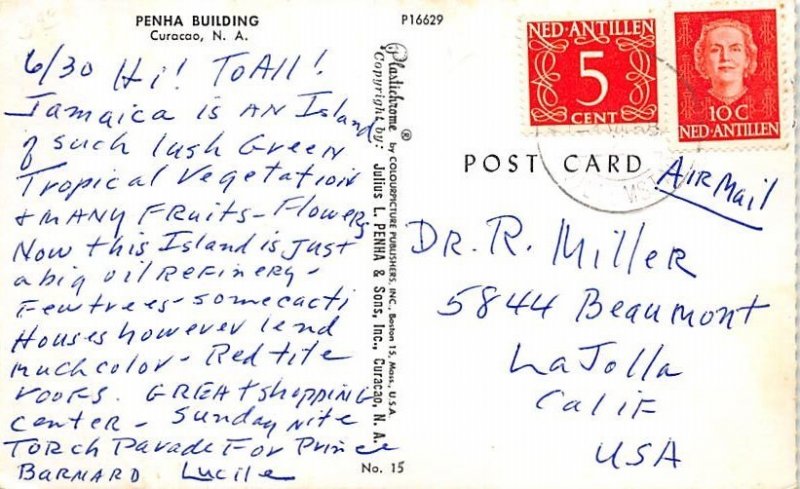 PENHA BUILDING
Curacao, N. A.
P16629
6/30 Hi! To All!
Jamaica is AN Island
of such lush Green
Tropical Vegetation
& MANY FRUITS - Flowers
Now this Island is Just
a big oil REFINERY -
Few trees - some cacti
Houses however lend
much color - Red tile
roofs. GREAT shopping
center - Sunday Nite
Torch Parade For Prince
BARNARD Lucile
Plastichrome ® by COLOURPICTURE PUBLISHERS, INC., Boston 15, Mass., U.S.A.
Copyright by: Julius L. PENHA & Sons, Inc., Curacao, N. A.
No. 15
NED·ANTILLEN
5
CENT
10 C
NED·ANTILLEN
POST CARD
AIR Mail
DR. R. Miller
5844 Beaumont
La Jolla
Calif
USA